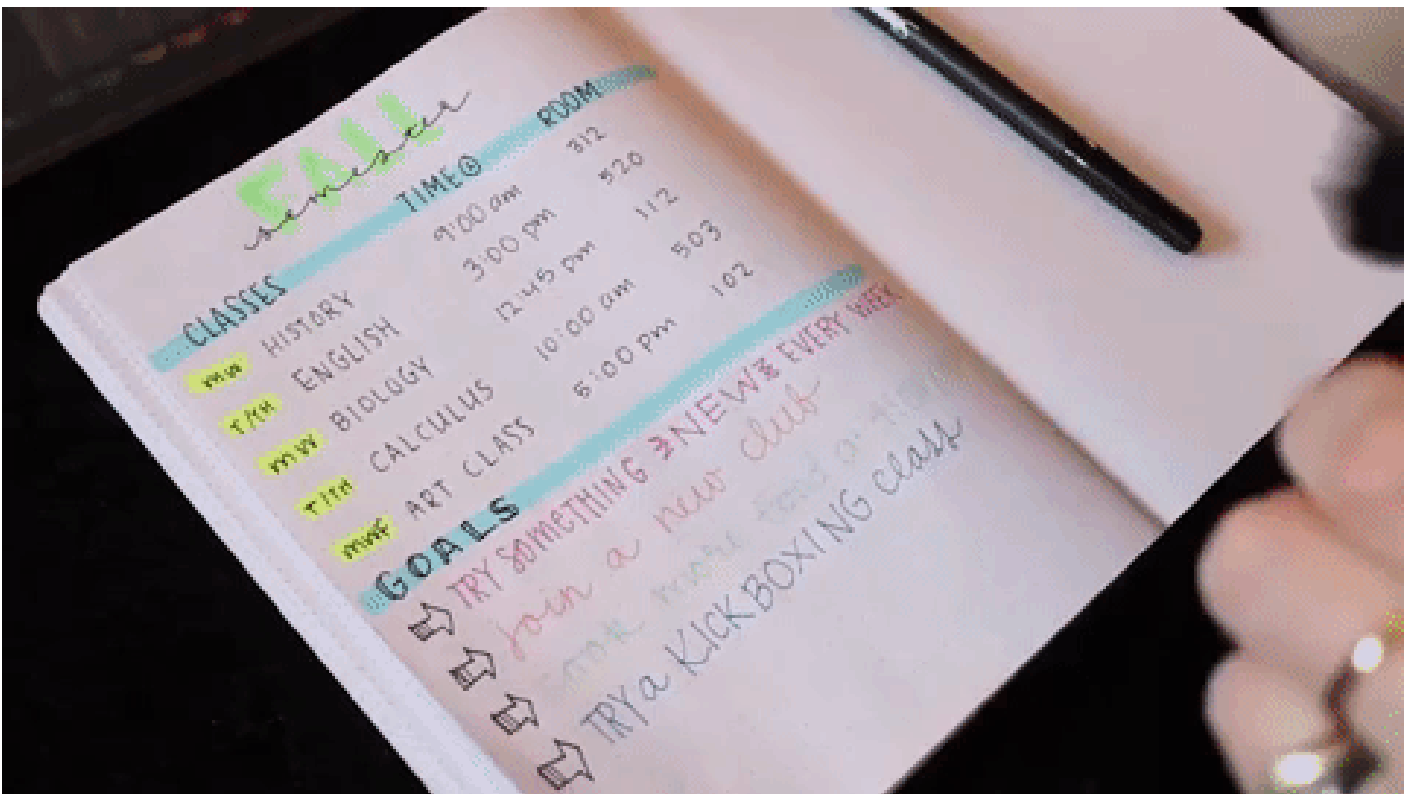 FALL
semester
CLASSES TIME ROOM
MW HISTORY 9:00 am 312
T/TH ENGLISH 3:00 pm 520
MW BIOLOGY 12:45 pm 112
T/TH CALCULUS 10:00 am 503
MWF ART CLASS 5:00 pm 102
GOALS
TRY SOMETHING NEW EVERY WEEK
join a new club
more food
TRY a KICKBOXING class